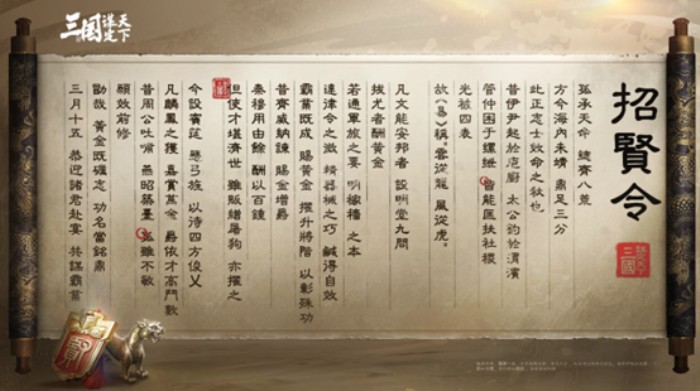 三国谋定天下
招賢令
孤承天命 統齊八荒
方今海內未靖 鼎足三分
此正志士效命之秋也
昔伊尹起於庖廚 太公釣於渭濱
管仲困于縲紲 皆能匡扶社稷
光被四表
故《易》稱。雲從龍 風從虎。
凡文能安邦者 設明堂九問
拔尤者酬黃金
若通軍旅之要 明稼穡之本
達律令之微 精器械之巧 鹹得自效
霸業既成 賜黃金 擢升將階 以彰殊功
昔齊威納諫 賜金增爵
秦穆用由餘 酬以百鎰
但使才堪濟世 雖販繒屠狗 亦擢之
今設賓筵 懸弓旌 以待四方俊乂
凡麟鳳之獲 嘉賞萬金 爵依才高鬥數
昔周公吐哺 燕昭築臺 孤雖不敏
願效前修
勖哉 黃金既礪志 功名當銘鼎
三月十五 恭迎諸君赴宴 共謀霸業